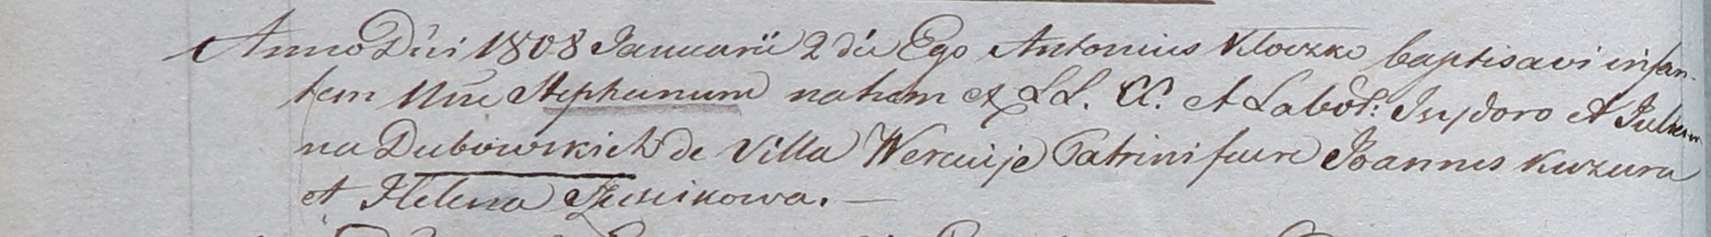 Anno Dni 1808 Januarii 2 die Ego Antonius Kloczko baptisavi infan-
tem Nne Stephanum natum ex LL. CC. et Labor: Isydoro et Julian-
na Dubowskich de Villa Patrini fuere Joannes Kuzura
et Helena